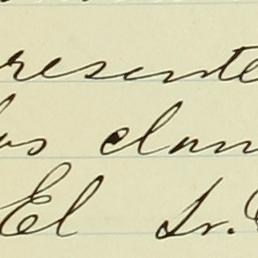 resente
los clau
El Sr.